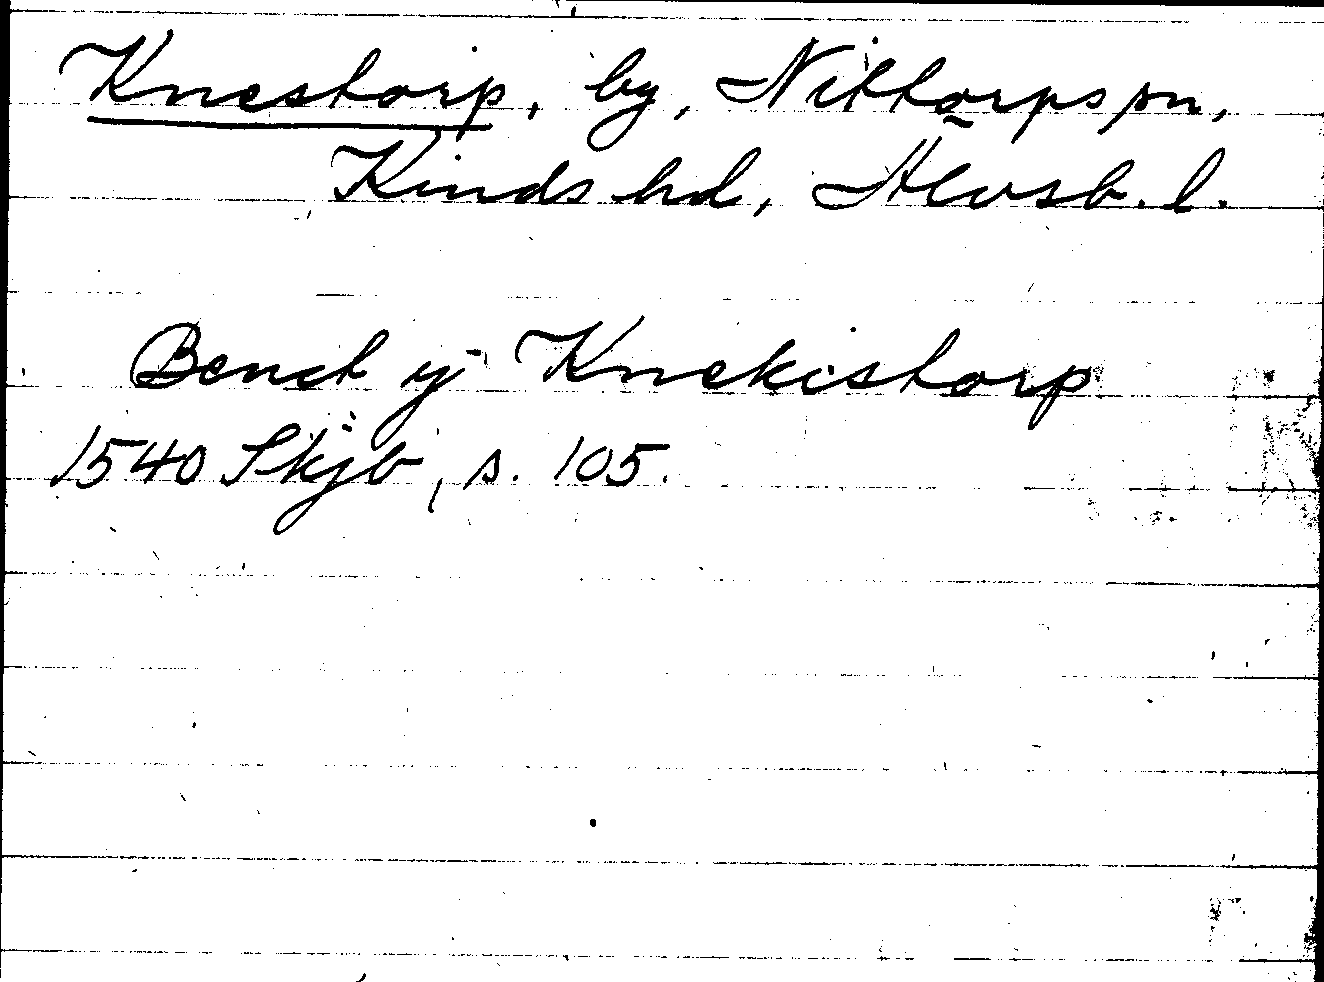 Knestorp, by, Nittorps sn,
Kinds hd, Älvsb. l.
Benct ij Knekistorp
1540 Skjb, s. 105.